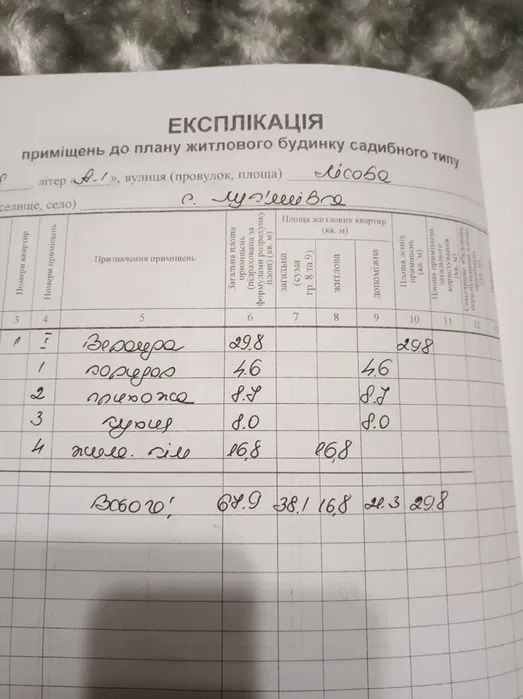 ЕКСПЛІКАЦІЯ
приміщень до плану житлового будинку садибного типу
літер «А-І», вулиця (провулок, площа) Лісова
селище, село) с.
Номери квартир
Номери приміщень
Призначення приміщень
Загальна площа приміщень (підрахована за формулами розрахунку площ) (кв. м)
Площа житлових квартир (кв. м)
загальна (сума гр. 8 та 9)
житлова
допоміжна
Площа літніх приміщень (кв. м)
Площа приміщень загального користування (кв. м)
3 4 5 6 7 8 9 10 11 12
1 І Веранда 29.8 29.8
1 коридор 4.6 4.6
2 прихожа 8.7 8.7
3 кухня 8.0 8.0
4 жила. кім 16,8 16,8
Всього! 67.9 38.1 16,8 21.3 29.8